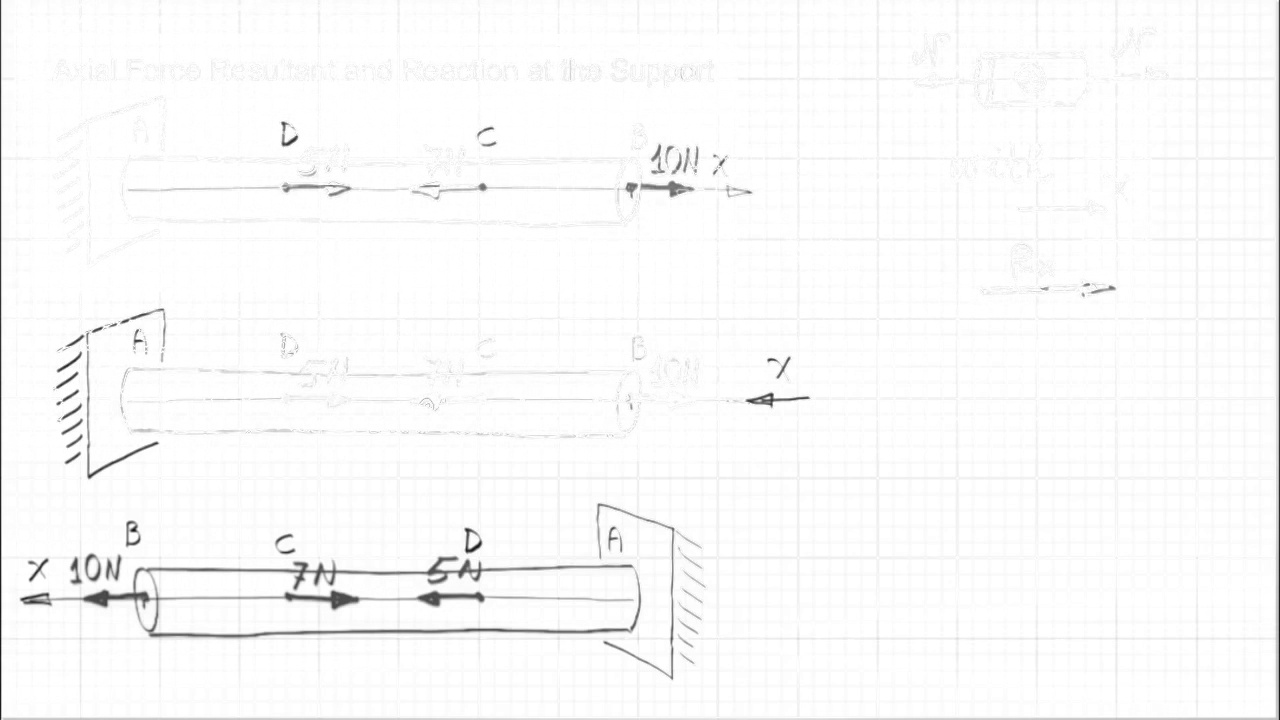 Axial Force Resultant and Reaction at the Support
N N
A D 5N 7N C B 10N X
x
Rx
A D 5N 7N C B 10N X
B C D A
X 10N 7N 5N